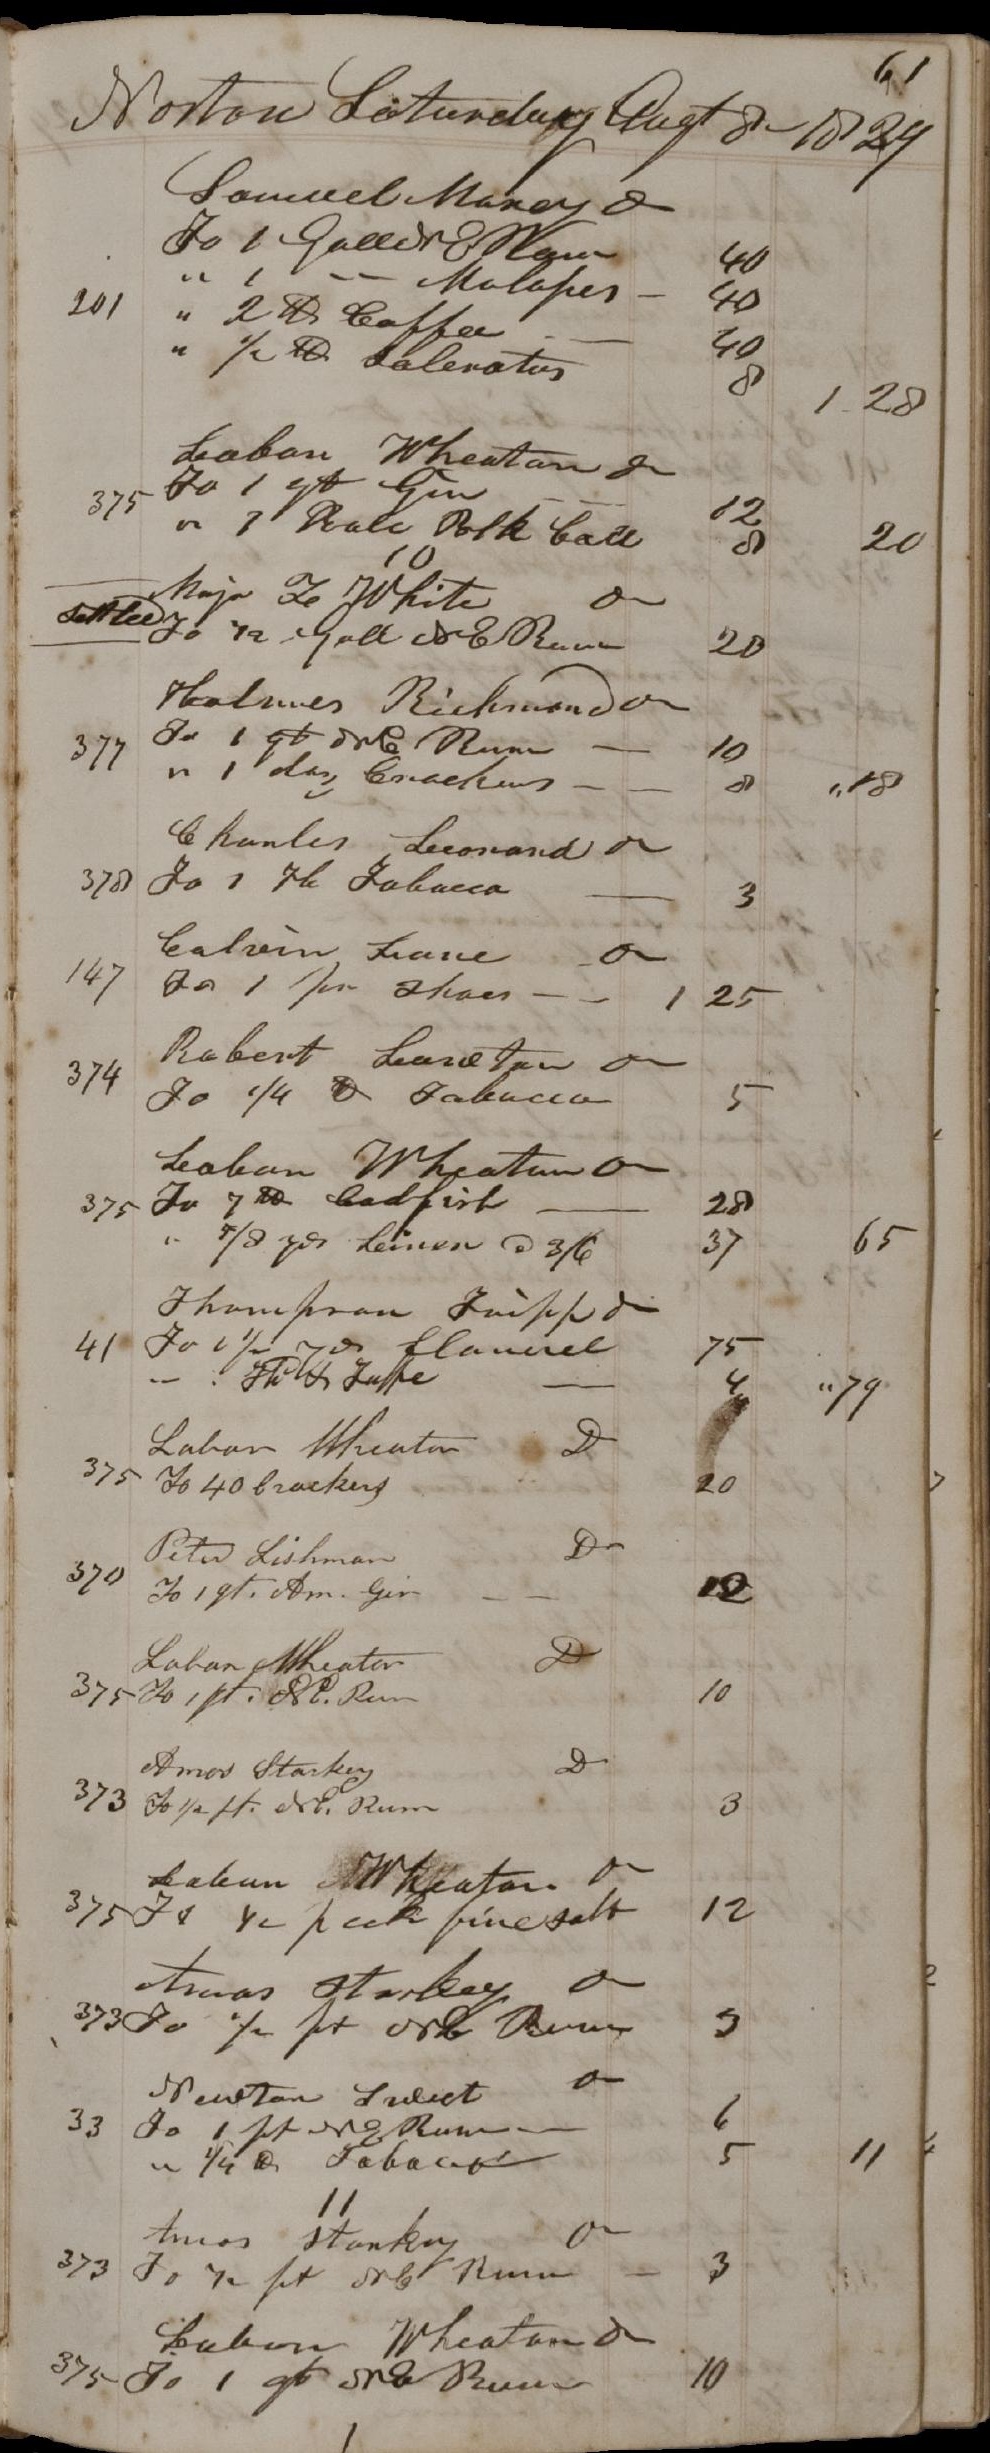 61
Norton Saturday Augt 8 - 1829
Samuel Marcy Dr
To 1 Gall N E Rum 40
" 1 -- Molasses - 40
201 " 2 lb Coffee - 40
" 1/2 lb Saleratus 8 1 28
Laban Wheaton Dr
375 To 1 qt Gin -- 12
" 1 Calf 8 20
10
White Dr
settled To 1/2 Gall N E Rum 20
Holmes Richmond Dr
377 To 1 qt N E Rum - 10
" 1 doz Crackers - - 8 " 18
Charles Leonard Dr
378 To 1 Tobacco - 3
Calvin Lane Dr
147 To 1 pr Shoes - - 1 25
Robert Dr
374 To 1/4 lb Tobacco 5
Laban Wheaton Dr
375 To 7 lb Codfish - 28
" 5/8 yds Linen @ 3/6 37 65
Thompson Tripp Dr
41 To 1 1/2 yds flannel 75
" - 4 " 79
Laban Wheaton Dr
375 To 40 Crackers 20
Peter Lishman Dr
370 To 1 qt. Am. Gin - - 12
Laban Wheaton Dr
375 To 1 pt. N E. Rum 10
Amos Starkey Dr
373 To 1/2 pt. N E. Rum 3
Laban Wheaton Dr
375 To 1/2 peck fine salt 12
Amos Starkey Dr
373 To 1/2 pt N E Rum 3
Newton Sweet Dr
33 To 1 pt N E Rum - 6
" 1/4 lb Tobacco 5 11
11
Amos Starkey Dr
373 To 1/2 pt N E Rum - 3
Laban Wheaton Dr
375 To 1 qt N E Rum 10